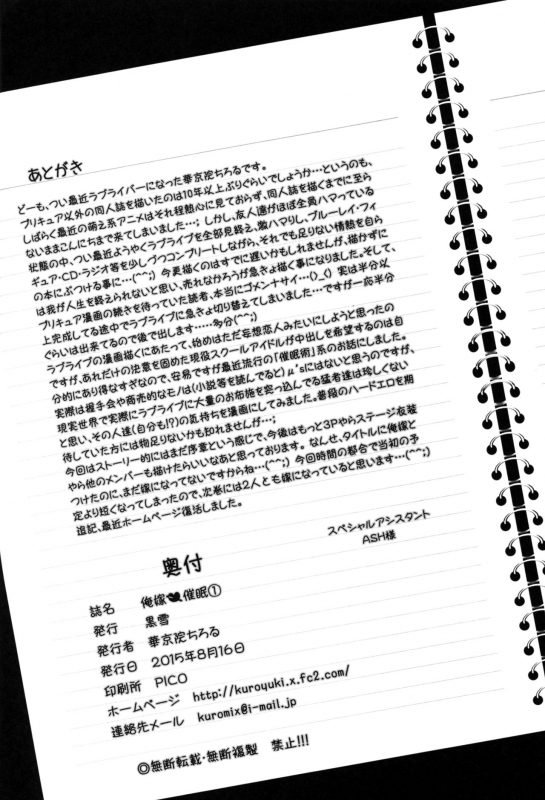 あとがき
どーも、つい最近ラブライバーになった華京院ちろるです。
プリキュア以外の同人誌を描いたのは10年以上ぶりぐらいでしょうか…というのも、
しばらく最近の萌え系アニメはそれ程熱心に見ておらず、同人誌を描くまでに至ら
ないままこんにちまで来てしまいました…; しかし、友人達がほぼ全員ハマっている
状態の中、つい最近ようやくラブライブを全部見終え、激ハマりし、ブルーレイ・フィ
ギュア・CD・ラジオ等を少しづつコンプリートしながら、それでも足りない情熱を自ら
の本にぶつける事に…(^^;) 今更描くのはすでに遅いかもしれませんが、描かずに
は我が人生を終えられないと思い、売れなかろうが急きょ描く事になりました。そして、
プリキュア漫画の続きを待っていた読者、本当にゴメンナサイ…(>_<) 実は半分以
上完成してる途中でラブライブに急きょ切り替えてしまいました…ですが一応半分
ぐらいは出来てるので後で出します……多分(^^;)
ラブライブの漫画描くにあたって、始めはただ妄想恋人みたいにしようと思ったの
ですが、あれだけの決意を固めた現役スクールアイドルが中出しを希望するのは自
分的にあり得なすぎなので、安易ですが最近流行の「催眠術」系のお話にしました。
実際は握手会や商売的なモノは(小説等を読んでると)μ'sにはないと思うのですが、
現実世界で実際にラブライブに大量のお布施を突っ込んでる猛者達は珍しくない
と思い、その人達(自分も!?)の気持ちを漫画にしてみました。普段のハードエロを期
待していた方には物足りないかも知れませんが…;
今回はストーリー的にはまだ序章という感じで、今後はもっと3Pやらステージ衣装
やら他のメンバーも描けたらいいなあと思っております。なんせ、タイトルに俺嫁と
つけたのに、まだ嫁になってないですからね…(^^;) 今回時間の都合で当初の予
定より短くなってしまったので、次巻には2人とも嫁になっていると思います…(^^;)
追記、最近ホームページ復活しました。
スペシャルアシスタント
ASH様
奥付
誌名 俺嫁催眠①
発行 黒雪
発行者 華京院ちろる
発行日 2015年8月16日
印刷所 PICO
ホームページ http://kuroyuki.x.fc2.com/
連絡先メール kuromix@i-mail.jp
◎無断転載・無断複製 禁止!!!